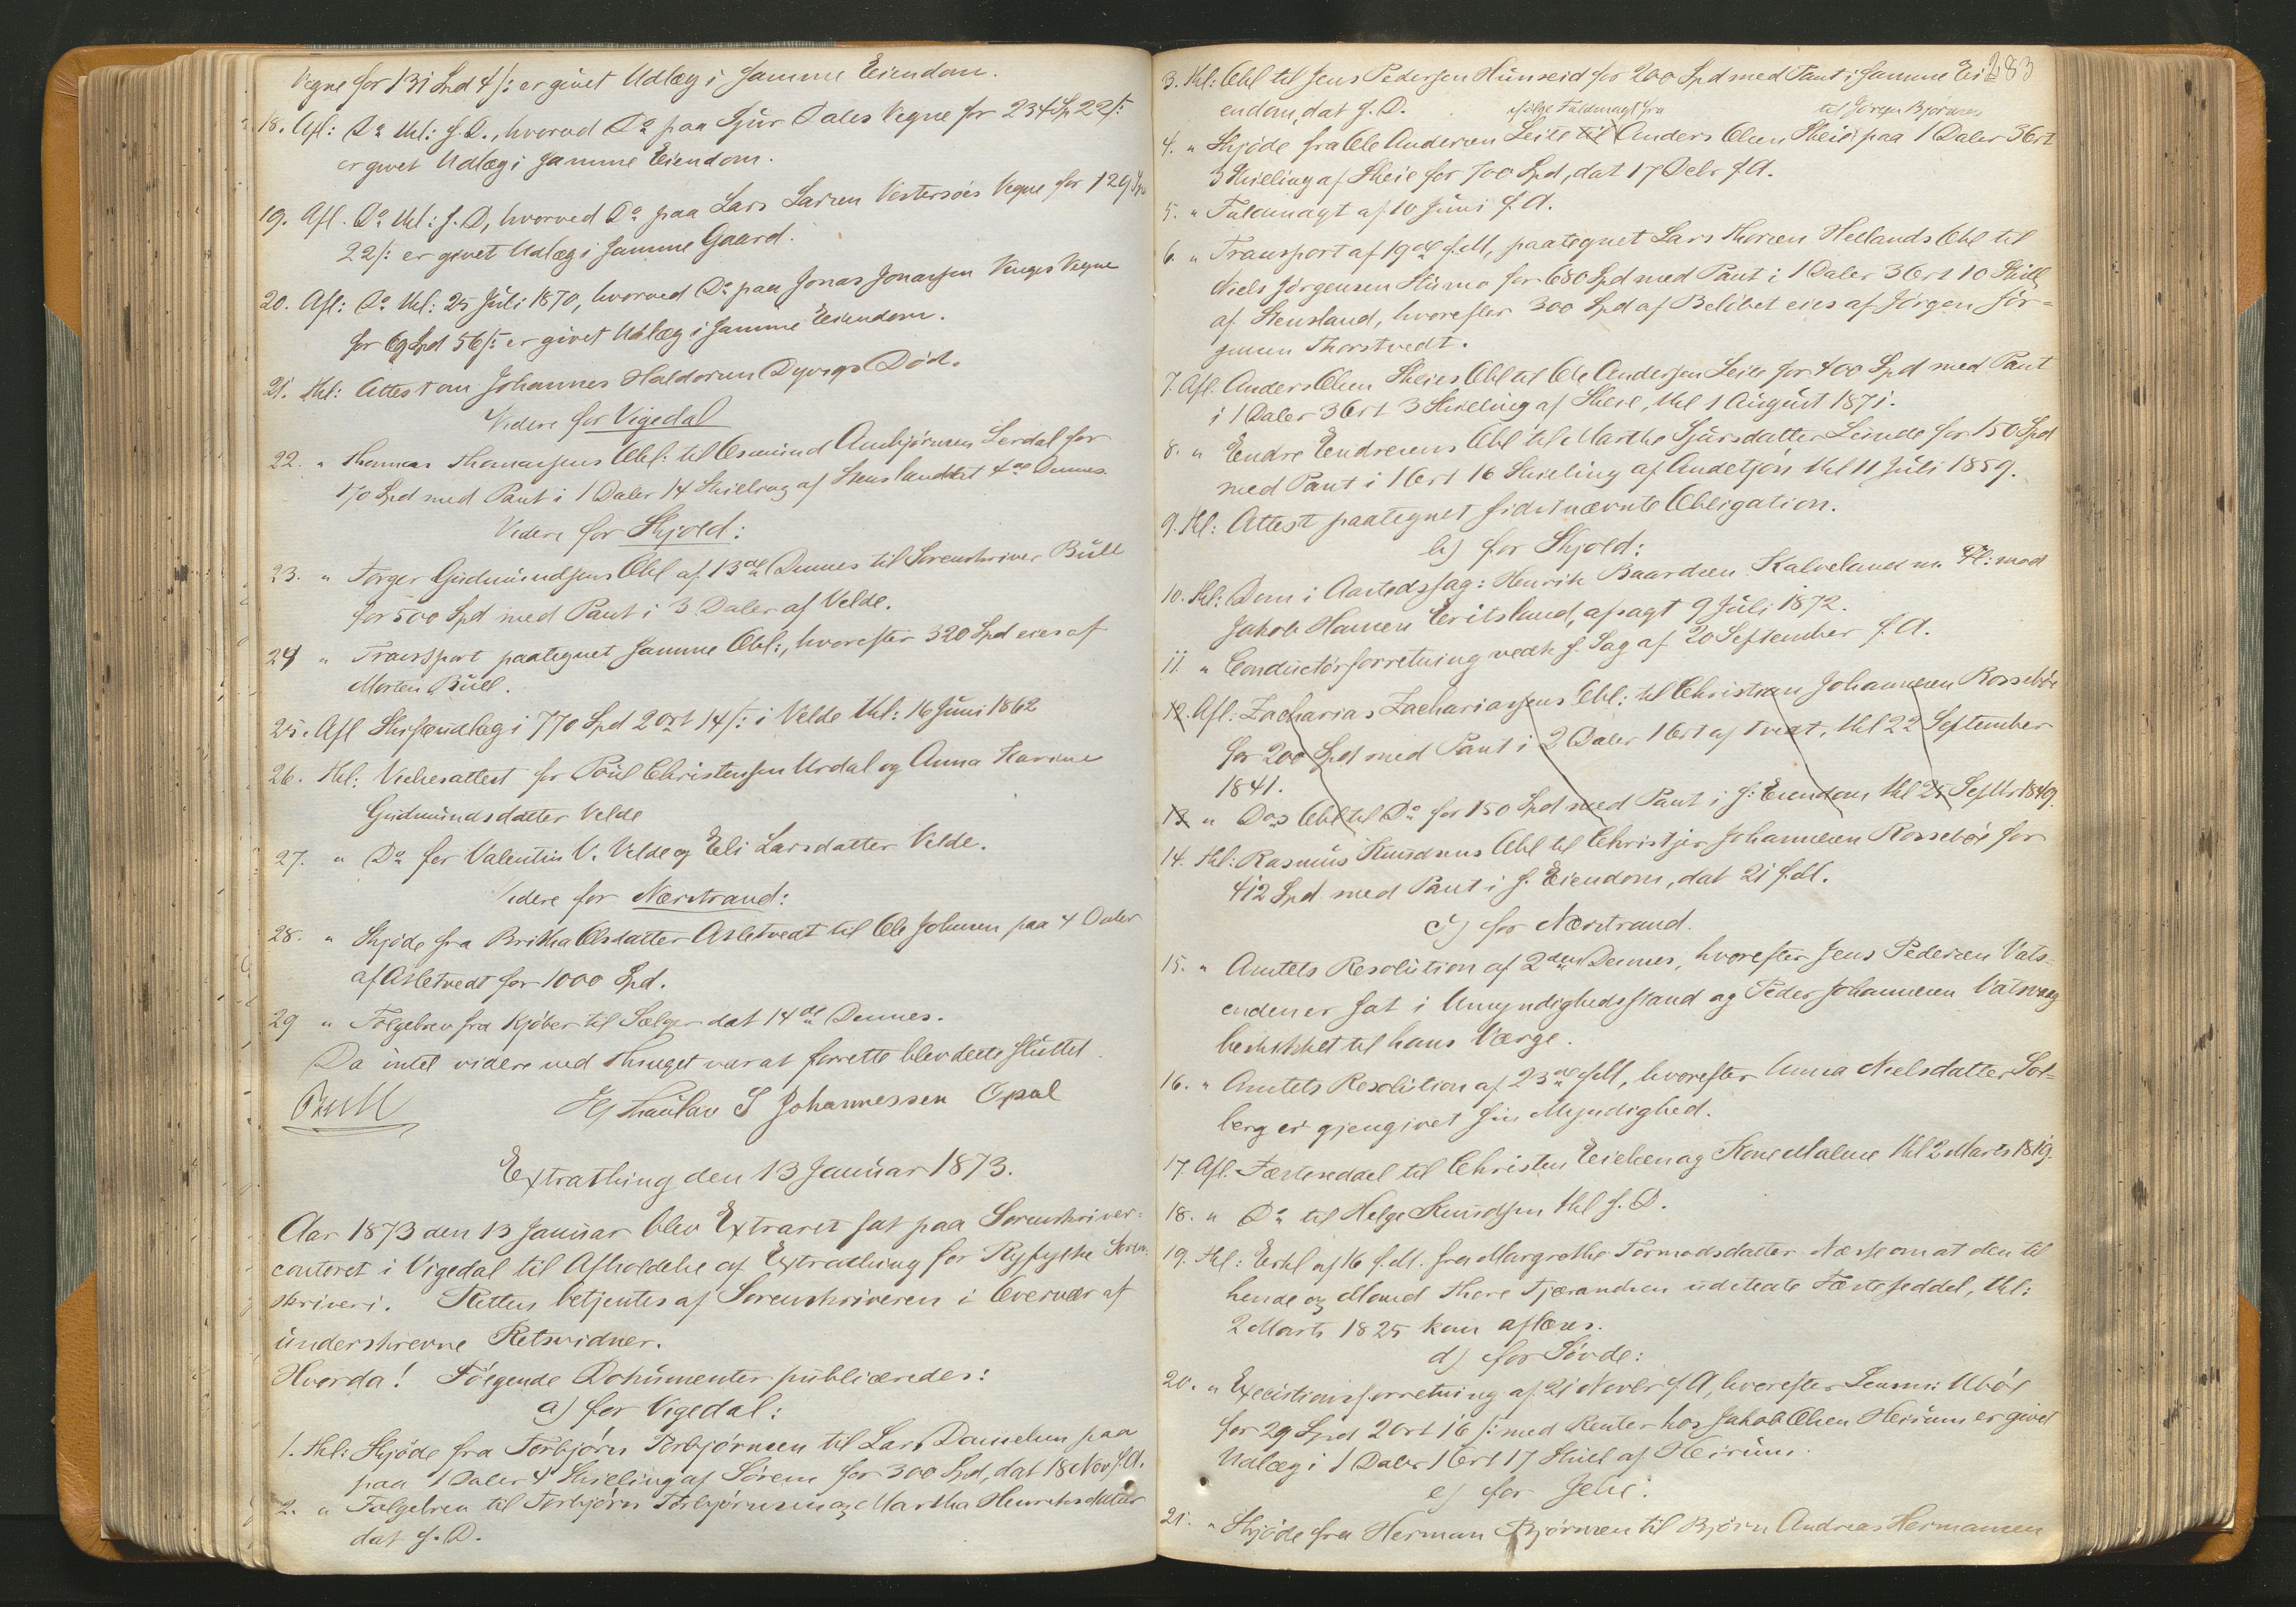 Vegne for 131 Spd 4 /: er givet Udlæg i samme Eiendom.
18. Afl: Do thl: s. D., hvorved Do paa Sjur Dales Vegne for 234 Sp 22 /:
er givet Udlæg i samme Eiendom.
19. Afl. Do thl: s. D, hvorved Do paa Lars Larsen Vestersøes Vegne for 129 Sp
22 /: er givet Udlæg i samme Gaard.
20. Afl: Do thl: 25 Juli 1870, hvorved Do paa Jonas Jonassen Venges Vegne
for 69 Spd 56 /: er givet Udlæg i samme Eiendom.
21. thl: Attest om Johannes Haldorsen Dyvigs Død.
Videre for Vigedal
22. " Thomas Thomassens Obl: til Osmund Ambjørnsen Lerdal for
170 Spd med Pant i 1 Daler 14 Skilling af Stensland dat 4de Dennes
Videre for Skjold:
23. " Torger Gudmundsens Obl af 13de Dennes til Sorenskriver Bull
for 500 Spd med Pant i 3 Daler af Velde.
24 " Transport paategnet samme Obl:, hvorefter 320 Spd eies af
Morten Bull.
25. Afl Skifteudlæg i 770 Spd 2 ort 14 /: i Velde thl: 16 Juni 1862
26. thl: Vielsesattest for Poul Christensen Urdal og Anna Karine
Gudmundsdatter Velde
27. " Do for Valentin V. Velde og Eli Larsdatter Velde.
Videre for Nærstrand:
28. " Skjøde fra Britha Olsdatter Asletvedt til Ole Johnsen paa 4 Daler
af Asletvedt for 1000 Spd.
29 " Følgebrev fra Kjøber til Sælger dat 14de Dennes.
Da intet videre ved Thinget var at forrette blev dette sluttet.
Bull Thaulav S Johannessen Opsal
Extrathing den 13 Januar 1873.
Aar 1873 den 13 Januar blev Extraret sat paa Sorenskriver-
contoret i Vigedal til Afholdelse af Extrathing for Ryfylke Soren-
skriveri. Retten betjentes af Sorenskriveren i Overvær af
underskrevne Retsvidner.
Hvorda! Følgende Dokumenter publiceredes:
a) for Vigedal:
1. thl: Skjøde fra Torbjørn Torbjørnsen til Lars Danielsen paa
paa 1 Daler 4 Skilling af Sørem for 300 Spd, dat 18 Nov f. A.
2. " Følgebrev til Torbjørn Torbjørnsen og Martha Henriksdatter
dat s. D.
283
3. thl: Obl til Jens Pedersen Hunseid for 200 Spd med Pant i samme Ei
endom, dat s. D.
ifølge Fuldmagt fra til Jørgen Bjørnsen
4. " Skjøde fra Ole Andersen Leile til Anders Olsen Skeie paa 1 Daler 3 Ort
3 Skilling af Skeie for 700 Spd, dat 17 Decbr f. A.
5. " Fuldmagt af 10 Juni f. A.
6. " Transport af 19de f. M, paategnet Lars Thorsen Hellands Obl til
Niels Jørgensen Stumo for 680 Spd med Pant i 1 Daler 3 Ort 10 Skill
af Stensland, hvorefter 300 Spd af Beløbet eies af Jørgen Jør-
gensen Thorstvedt.
7. Afl. Anders Olsen Skeies Obl til Ole Andersen Leile for 400 Spd med Pant
i 1 Daler 3 Ort 3 Skilling af Skeie, thl 1 August 1871.
8. " Endre Endresens Obl til Marthe Sjursdatter Lunde for 150 Spd
med Pant i 1 Ort 16 Skilling af Andetjøn thl 11 Juli 1859.
9. thl: Attest paategnet sidstnævnte Obligation.
b) for Skjold:
10. thl: Dom i Aastedssag: Henrik Baardsen Kalveland m. Fl: mod
Jakob Hansen Eritsland, afsagt 9 Juli 1872.
11. " Conductørforretning vedk s. Sag af 20 September f. A.
12. Afl: Zacharias Zachariassens Obl: til Christian Johannesen Rossebøe
for 200 Spd med Pant i 2 Daler 1 Ort af Tveit, thl 22 September
1841.
13 " Dos Obl til Do for 150 Spd med Pant i s: Eiendom thl 25 Septbr 1849.
14. thl: Rasmus Knudsens Obl til Christjer Johannesen Rossebøe for
412 Spd med Pant i s. Eiendom, dat 21 f. M.
c) for Nærstrand.
15. " Amtets Resolution af 2den Dennes, hvorefter Jens Pedersen Vats-
enden er sat i Umyndighedsstand og Peder Johannesen Vatsvaag
beskikket til hans Værge.
16. " Amtets Resolution af 23de f. M, hvorefter Anna Nielsdatter Sol-
berg er gjengivet sin Myndighed.
17. Afl. Fæsteseddel til Christen Erichsen og Kone Malene thl 2 Marts 1819.
18. " Do til Helge Knudsen thl s. D.
19. thl: Erkl af 16 f. M. fra Margrethe Tormodsdatter Næs om at den til
hende og Mand Thore Tjerandsen udstedte Fæsteseddel, thl:
2 Marts 1825 kan aflæses.
d) for Søvde:
20. " Executionsforretning af 21 Novbr f. A, hvorefter Ubøe
for 29 Spd 2 Ort 16 /: med Renter hos Jakob Olsen Heirum er givet
Udlæg i 1 Daler 1 Ort 17 Skill af Heirum.
e) for Jelse:
21. " Skjøde fra Herman Bjørnsen til Bjørn Andreas Hermansen